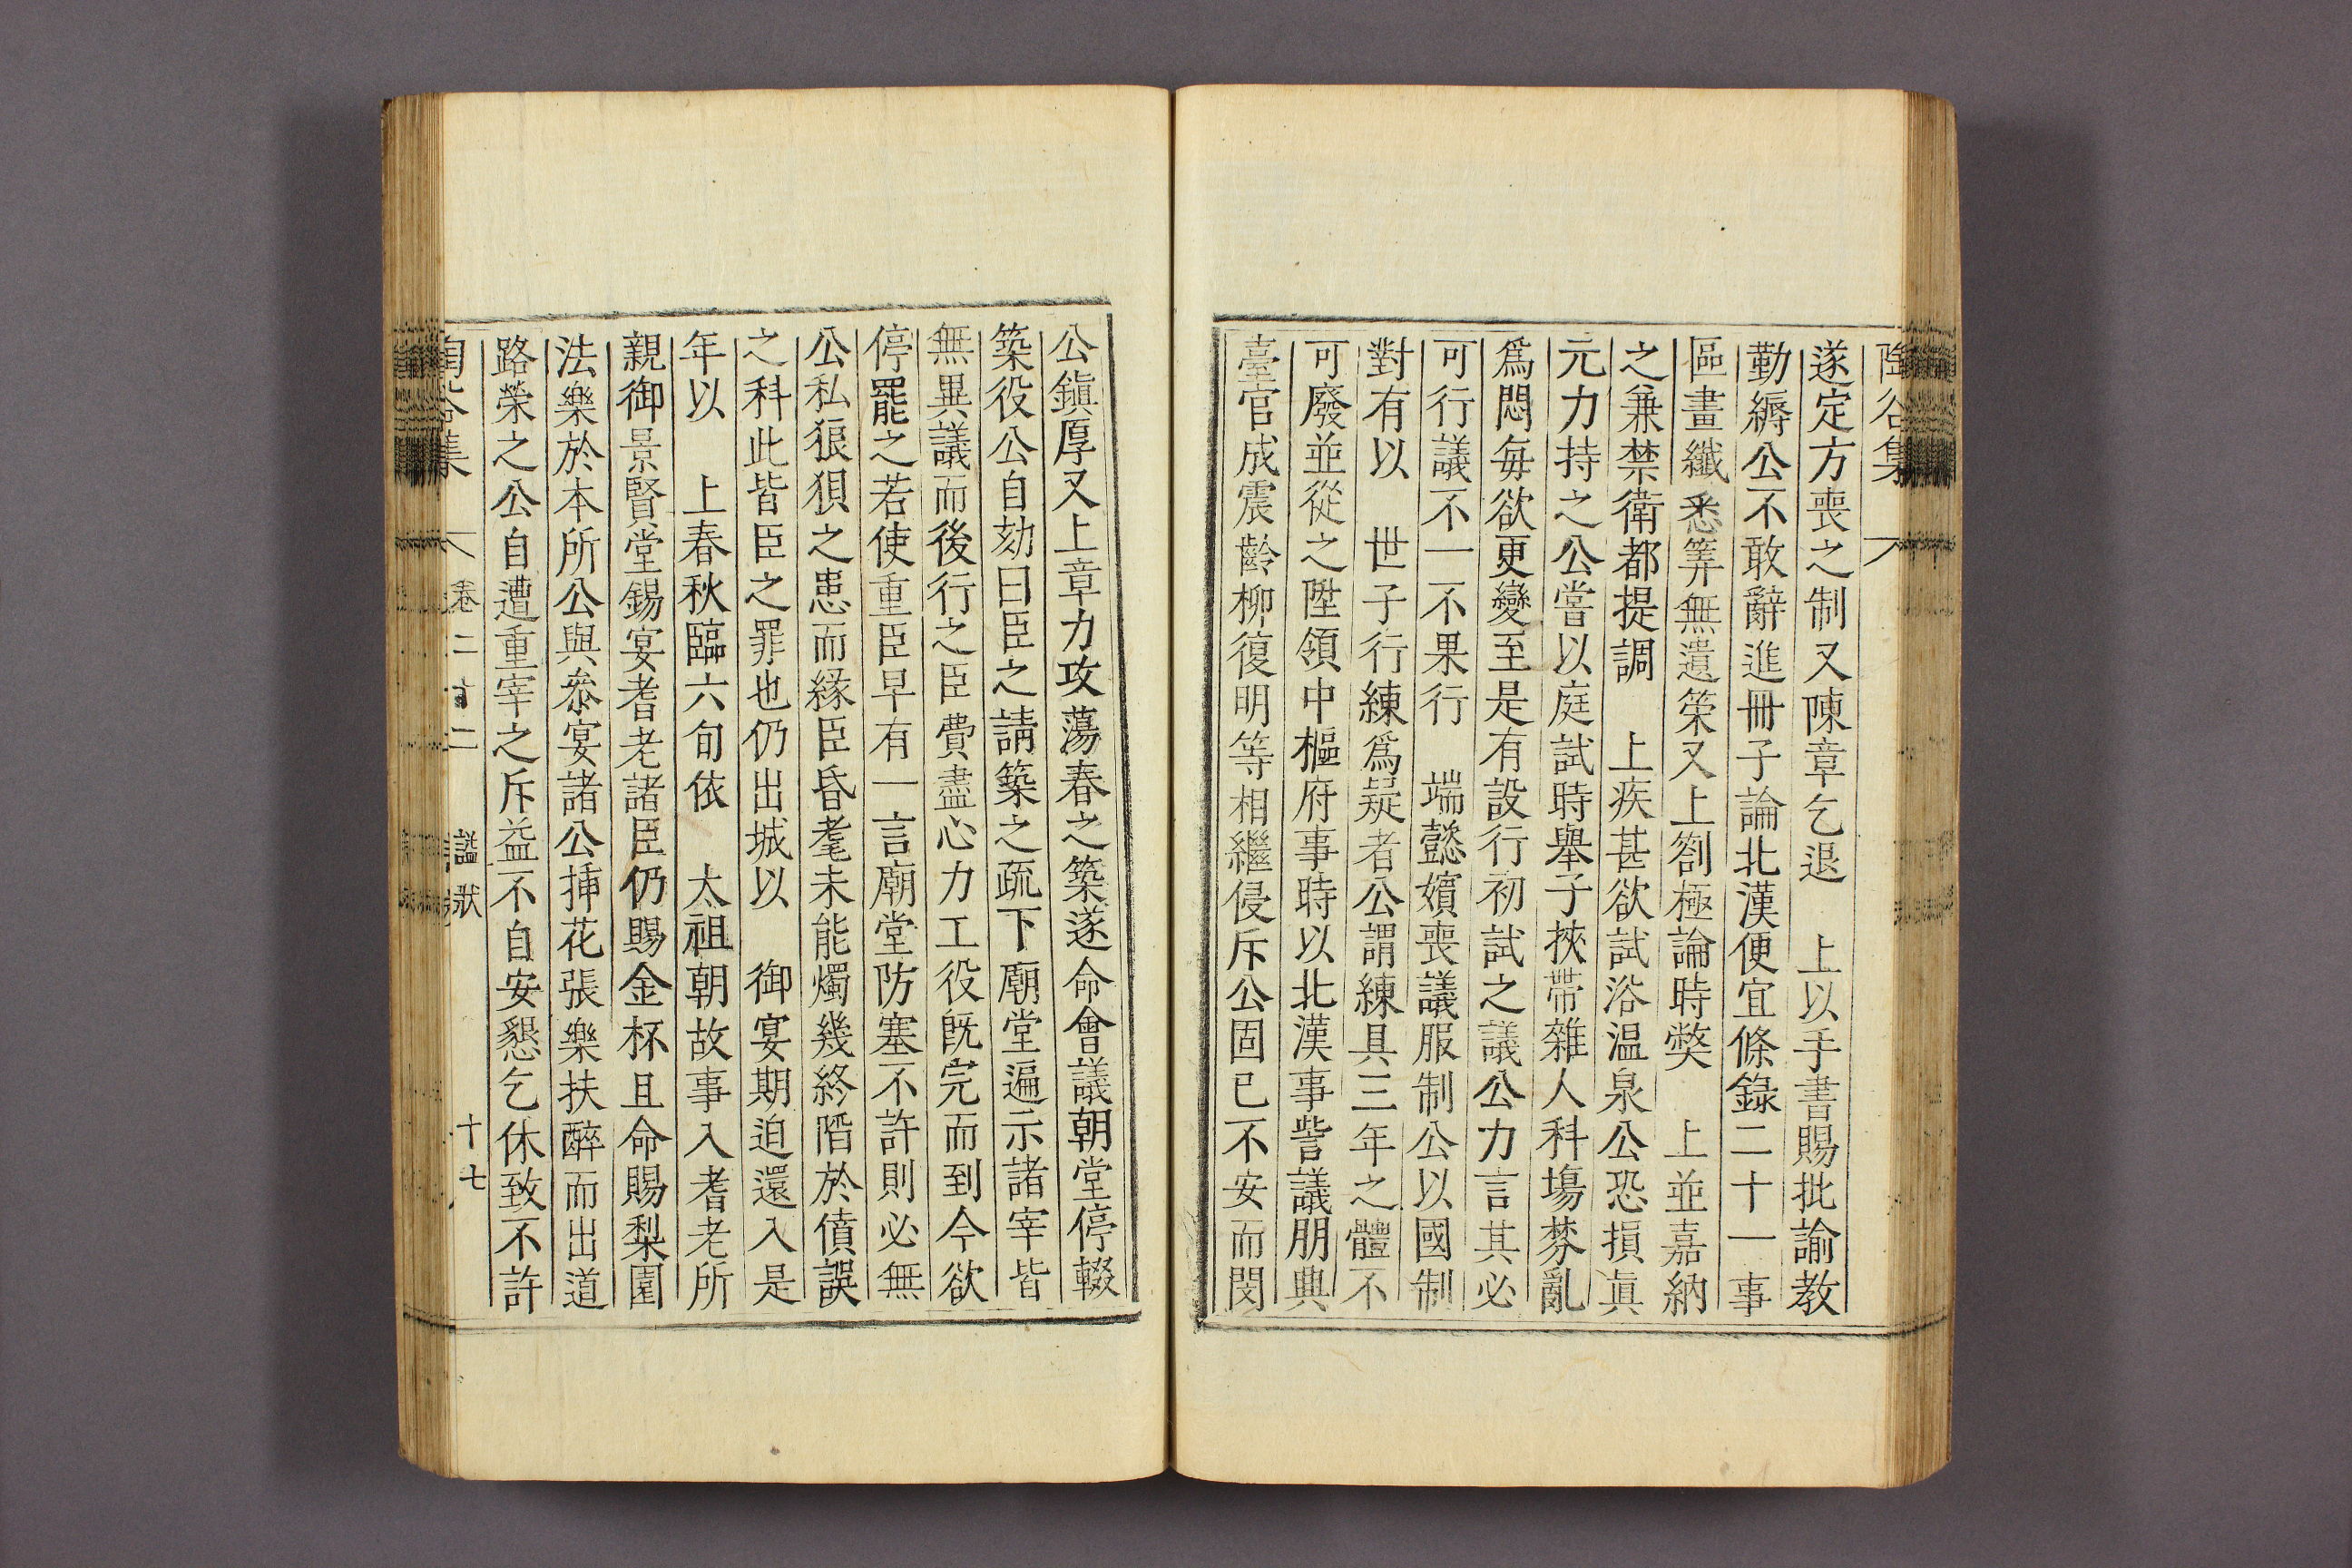 陶谷集
遂定方喪之制又陳章乞退　上以手書賜批諭教
勤縟公不敢辭進冊子論北漢便宜條錄二十一事
區畫纖悉筭無遺策又上劄極論時獘　上並嘉納
之兼禁衛都提調　上疾甚欲試浴温泉公恐損眞
元力持之公嘗以庭試時舉子挾帶雜人科場棼亂
爲悶每欲更變至是有設行初試之議公力言其必
可行議不一不果行　端懿嬪喪議服制公以國制
對有以　世子行練爲疑者公謂練具三年之體不
可廢並從之陞領中樞府事時以北漢事訾議朋興
臺官成震齡柳復明等相繼侵斥公固已不安而閔
公鎭厚又上章力攻蕩春之築遂命會議朝堂停輟
築役公自劾曰臣之請築之疏下廟堂遍示諸宰皆
無異議而後行之臣費盡心力工役旣完而到今欲
停罷之若使重臣早有一言廟堂防塞不許則必無
公私狼狽之患而緣臣昏耄未能燭幾終陷於僨誤
之科此皆臣之罪也仍出城以　御宴期迫還入是
年以　上春秋臨六旬依　太祖朝故事入耆老所
親御景賢堂錫宴耆老諸臣仍賜金杯且命賜梨園
法樂於本所公與叅宴諸公揷花張樂扶醉而出道
路榮之公自遭重宰之斥益不自安懇乞休致不許
陶谷集　卷二十二　諡狀　十七